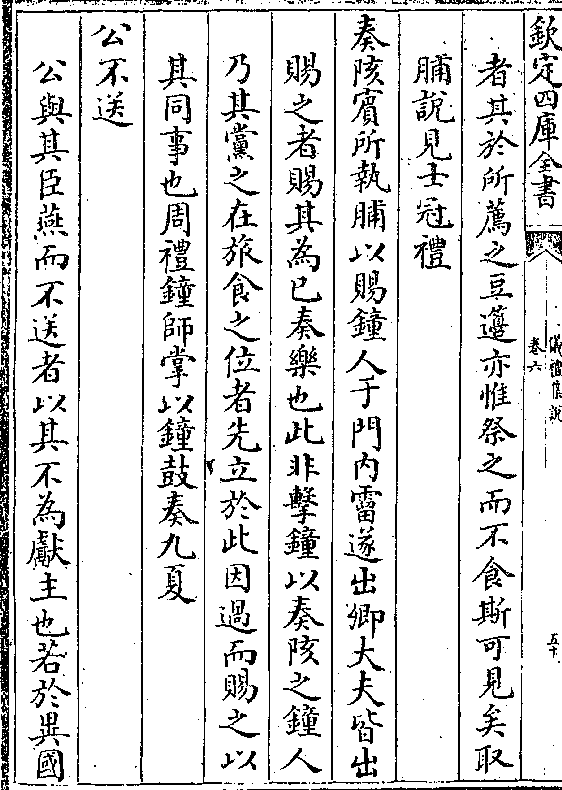 欽定四庫全書
儀禮集說
卷六
五十
者其於所薦之豆籩亦惟祭之而不食斯可見矣取
脯說見士冠禮
奏陔賔所執脯以賜鐘人于門内霤遂出卿大夫皆出
賜之者賜其為已奏樂也此非擊鐘以奏陔之鐘人
乃其黨之在旅食之位者先立於此因過而賜之以
其同事也周禮鐘師掌以鐘鼓奏九夏
公不送
公與其臣燕而不送者以其不為獻主也若於異國